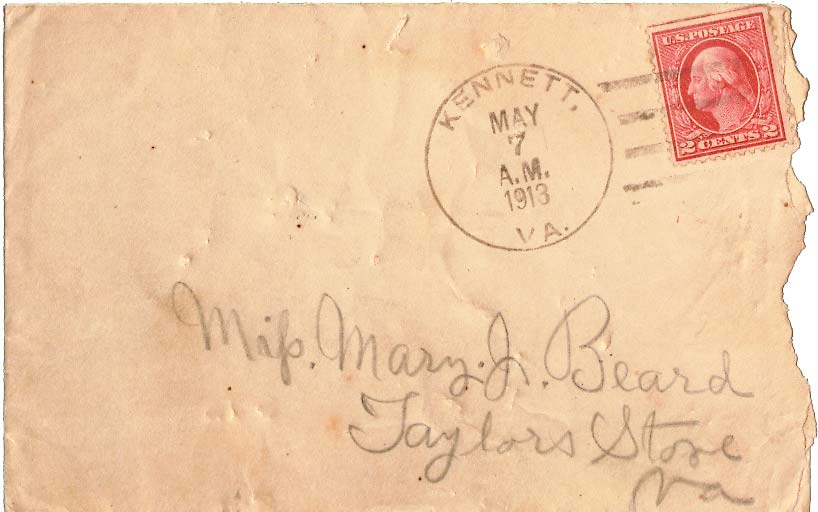 KENNETT,
MAY
7
A.M.
1913
VA.
U.S. POSTAGE
2 CENTS 2
Miſs. Mary. J. Beard
Taylors Store
Va